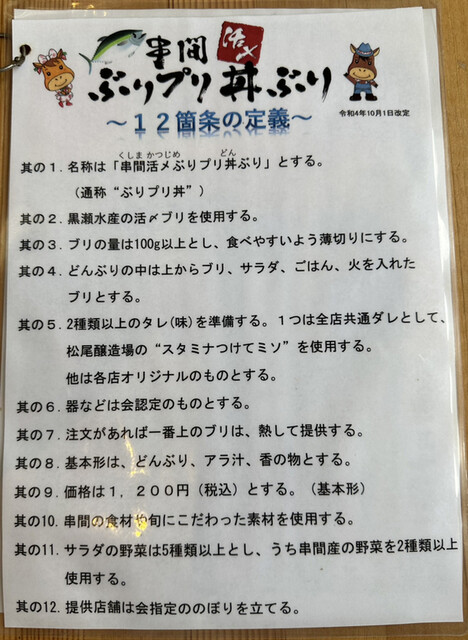 串間 活〆
ぶりプリ丼ぶり
~12箇条の定義~
令和4年10月1日改定
くしま かつじめ どん
其の1. 名称は「串間活〆ぶりプリ丼ぶり」とする。
(通称“ぶりプリ丼”)
其の2. 黒瀬水産の活〆ブリを使用する。
其の3. ブリの量は100g以上とし、食べやすいよう薄切りにする。
其の4. どんぶりの中は上からブリ、サラダ、ごはん、火を入れた
ブリとする。
其の5. 2種類以上のタレ(味)を準備する。1つは全店共通ダレとして、
松尾醸造場の“スタミナつけてミソ”を使用する。
他は各店オリジナルのものとする。
其の6. 器などは会認定のものとする。
其の7. 注文があれば一番上のブリは、熱して提供する。
其の8. 基本形は、どんぶり、アラ汁、香の物とする。
其の9. 価格は1,200円(税込)とする。(基本形)
其の10. 串間の食材や旬にこだわった素材を使用する。
其の11. サラダの野菜は5種類以上とし、うち串間産の野菜を2種類以上
使用する。
其の12. 提供店舗は会指定ののぼりを立てる。